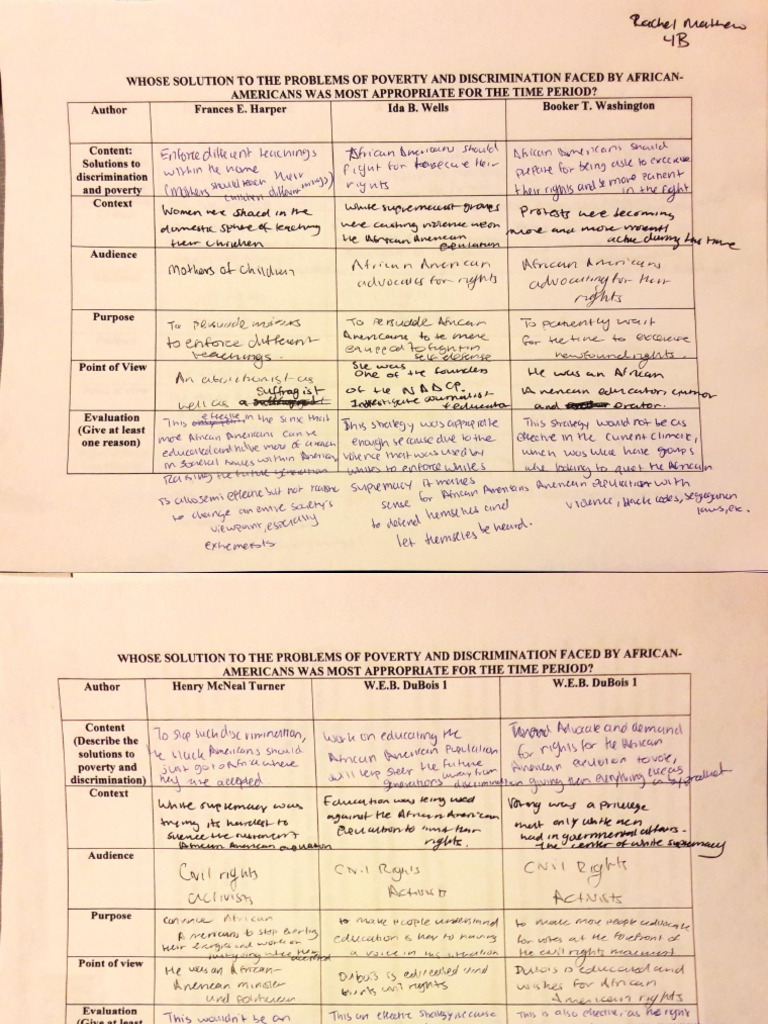 Rachel Mathew
4B
WHOSE SOLUTION TO THE PROBLEMS OF POVERTY AND DISCRIMINATION FACED BY AFRICAN-
AMERICANS WAS MOST APPROPRIATE FOR THE TIME PERIOD?
Author
Frances E. Harper
Ida B. Wells
Booker T. Washington
Content:
Solutions to
discrimination
and poverty
Enforce different teachings
within the home
(Mothers should teach their
children different things)
African Americans should
fight for their
rights
African Americans should
prepare for being able to exercise
their rights and be more patient
in the fight
Context
Women were placed in the
domestic sphere of teaching
their children
White supremacist groups
were causing violence upon
the African American
population
Protests were becoming
more and more violent
active during this time
Audience
Mothers of children
African American
advocates for rights
African Americans
advocating for their
rights
Purpose
To persuade mothers
to enforce different
teachings.
To persuade African
Americans to be more
equipped to fight in
self defense
To patiently wait
for the time to exercise
newfound rights.
Point of View
An abolitionist as
well as a suffragist
She was
one of the founders
of the NAACP.
Investigate journalist
+ educator
He was an African
American educator, author
and orator.
Evaluation
(Give at least
one reason)
This effective in the sense that
more African Americans can be
educated and more of
in societal issues within America
Raising the future generation
is also semi effective but not
to change an entire society's
viewpoint, especially
extremists
This strategy was appropriate
enough because due to the
violence that was used by
whites to enforce white
supremacy it makes
sense for African Americans
to defend themselves and
let themselves be heard.
This strategy would not be as
effective in the current climate,
which was white groups
were looking to quiet the African
American population with
violence, black codes, segregation
laws, etc.
WHOSE SOLUTION TO THE PROBLEMS OF POVERTY AND DISCRIMINATION FACED BY AFRICAN-
AMERICANS WAS MOST APPROPRIATE FOR THE TIME PERIOD?
Author
Henry McNeal Turner
W.E.B. DuBois 1
W.E.B. DuBois 1
Content
(Describe the
solutions to
poverty and
discrimination)
To stop such discrimination,
the black Americans should
just go to Africa where
they are accepted
Work on educating the
African American Population
will help steer the future
generations away from
discrimination
Advocate and demand
for rights for the African
American population to vote,
giving them everything else as
a product
Context
White supremacy was
trying its hardest to
silence the movement
African American population
Education was being used
against the African American
Population to limit their
rights.
Voting was a privilege
most only white men
had in governmental affairs.
The center of white supremacy
Audience
Civil rights
activists
Civil Rights
Activists
Civil Rights
Activists
Purpose
Convince African
Americans to stop
their energies and work on
accepted
to make people understand
education is key to having
a voice in this situation
to make more people advocate
for votes at the forefront of
the civil rights movement
Point of view
He was an African-
American minister
and politician
DuBois is educated and
wants civil rights
DuBois is educated and
wishes for African
American rights
Evaluation
(Give at least
This wouldn't be an
This an effective strategy because
This is also effective, as the right